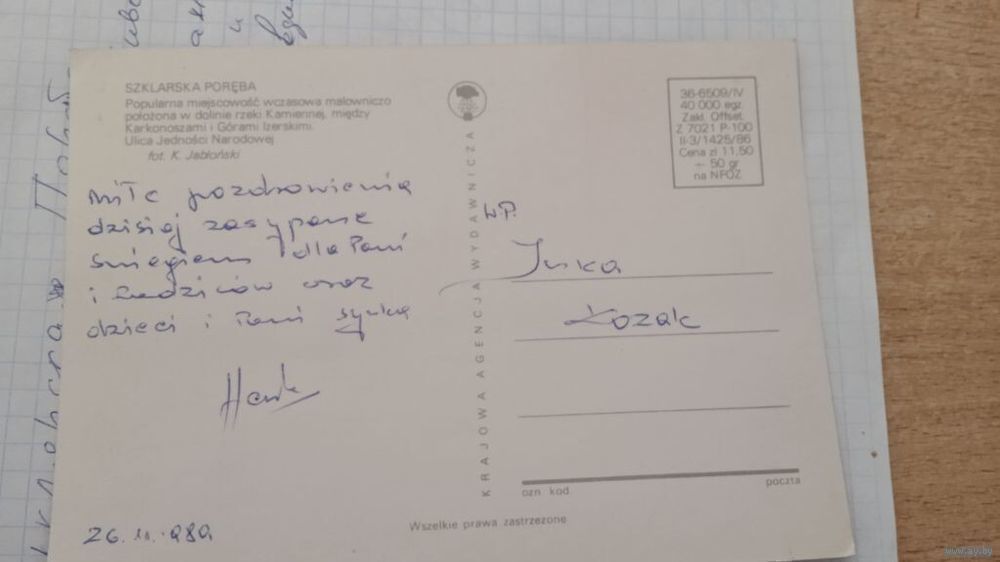 SZKLARSKA PORĘBA
Popularna miejscowość wczasowa malowniczo
położona w dolinie rzeki Kamiennej, między
Karkonoszami i Górami Izerskimi.
Ulica Jedności Narodowej
fot. K. Jabłoński
miłe pozdrowienia
dzisiaj zasypane
śniegiem dla Pani
i Rodziców oraz
dzieci i Pani synka
26. 11. 989
KRAJOWA AGENCJA WYDAWNICZA
36-6509/IV
40 000 egz.
Zakl. Offset.
Z 7021 P-100
II-3/1425/86
Cena zł 11,50
+ 50 gr
na NFOZ
W.P.
Inka
Kozak
ozn. kod.
poczta
Wszelkie prawa zastrzeżone
www.ay.by